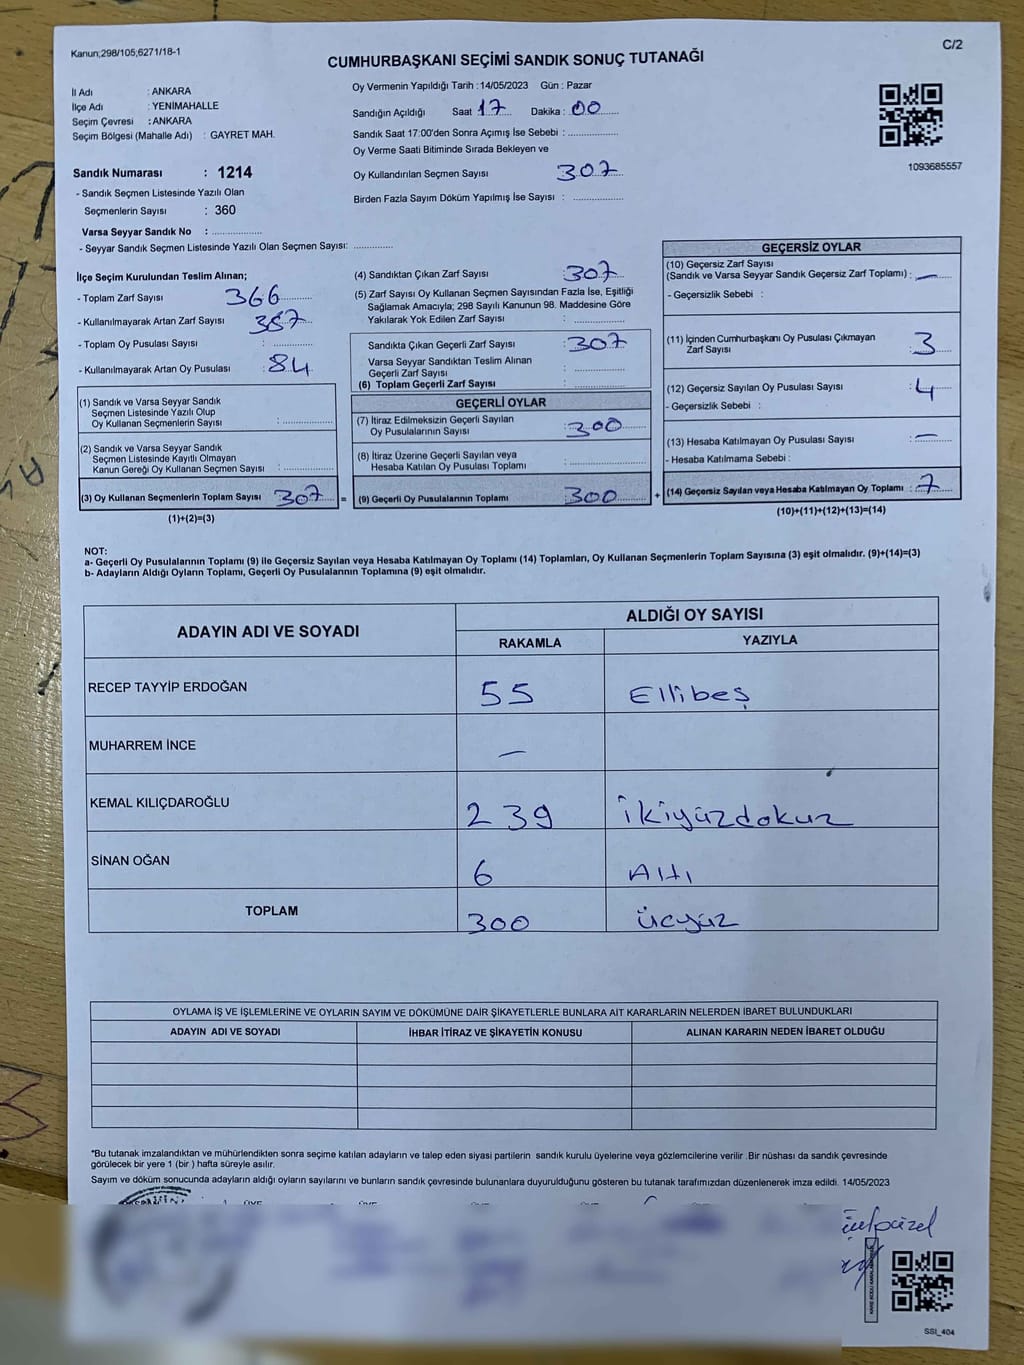 Kanun;298/105;6271/18-1
C/2
CUMHURBAŞKANI SEÇİMİ SANDIK SONUÇ TUTANAĞI
İl Adı : ANKARA
İlçe Adı : YENİMAHALLE
Seçim Çevresi : ANKARA
Seçim Bölgesi (Mahalle Adı) : GAYRET MAH.
Sandık Numarası : 1214
- Sandık Seçmen Listesinde Yazılı Olan
Seçmenlerin Sayısı : 360
Varsa Seyyar Sandık No : ..............
- Seyyar Sandık Seçmen Listesinde Yazılı Olan Seçmen Sayısı: ............
Oy Vermenin Yapıldığı Tarih : 14/05/2023 Gün : Pazar
Sandığın Açıldığı Saat 17 Dakika : 00
Sandık Saat 17:00'den Sonra Açımış İse Sebebi : ..............
Oy Verme Saati Bitiminde Sırada Bekleyen ve
Oy Kullandırılan Seçmen Sayısı 307
Birden Fazla Sayım Döküm Yapılmış İse Sayısı : ..............
1093685557
İlçe Seçim Kurulundan Teslim Alınan;
- Toplam Zarf Sayısı 366
- Kullanılmayarak Artan Zarf Sayısı 357
- Toplam Oy Pusulası Sayısı : ..............
- Kullanılmayarak Artan Oy Pusulası : 84
(1) Sandık ve Varsa Seyyar Sandık
Seçmen Listesinde Yazılı Olup
Oy Kullanan Seçmenlerin Sayısı : ..............
(2) Sandık ve Varsa Seyyar Sandık
Seçmen Listesinde Kayıtlı Olmayan
Kanun Gereği Oy Kullanan Seçmen Sayısı : ..............
(3) Oy Kullanan Seçmenlerin Toplam Sayısı 307 =
(1)+(2)=(3)
(4) Sandıktan Çıkan Zarf Sayısı 307
(5) Zarf Sayısı Oy Kullanan Seçmen Sayısından Fazla İse, Eşitliği
Sağlamak Amacıyla; 298 Sayılı Kanunun 98. Maddesine Göre
Yakılarak Yok Edilen Zarf Sayısı : ..............
Sandıkta Çıkan Geçerli Zarf Sayısı : 307
Varsa Seyyar Sandıktan Teslim Alınan
Geçerli Zarf Sayısı : ..............
(6) Toplam Geçerli Zarf Sayısı : ..............
GEÇERLİ OYLAR
(7) İtiraz Edilmeksizin Geçerli Sayılan
Oy Pusulalarının Sayısı : 300
(8) İtiraz Üzerine Geçerli Sayılan veya
Hesaba Katılan Oy Pusulası Toplamı : ..............
(9) Geçerli Oy Pusulalarının Toplamı : 300 +
GEÇERSİZ OYLAR
(10) Geçersiz Zarf Sayısı
(Sandık ve Varsa Seyyar Sandık Geçersiz Zarf Toplamı) : —
- Geçersizlik Sebebi :
(11) İçinden Cumhurbaşkanı Oy Pusulası Çıkmayan
Zarf Sayısı 3
(12) Geçersiz Sayılan Oy Pusulası Sayısı : 4
- Geçersizlik Sebebi :
(13) Hesaba Katılmayan Oy Pusulası Sayısı : —
- Hesaba Katılmama Sebebi :
(14) Geçersiz Sayılan veya Hesaba Katılmayan Oy Toplamı : 7
(10)+(11)+(12)+(13)=(14)
NOT:
a- Geçerli Oy Pusulalarının Toplamı (9) ile Geçersiz Sayılan veya Hesaba Katılmayan Oy Toplamı (14) Toplamları, Oy Kullanan Seçmenlerin Toplam Sayısına (3) eşit olmalıdır. (9)+(14)=(3)
b- Adayların Aldığı Oyların Toplamı, Geçerli Oy Pusulalarının Toplamına (9) eşit olmalıdır.
ADAYIN ADI VE SOYADI
ALDIĞI OY SAYISI
RAKAMLA YAZIYLA
RECEP TAYYİP ERDOĞAN 55 Ellibeş
MUHARREM İNCE —
KEMAL KILIÇDAROĞLU 239 ikiyüzdokuz
SİNAN OĞAN 6 Altı
TOPLAM 300 üçyüz
OYLAMA İŞ VE İŞLEMLERİNE VE OYLARIN SAYIM VE DÖKÜMÜNE DAİR ŞİKAYETLERLE BUNLARA AİT KARARLARIN NELERDEN İBARET BULUNDUKLARI
ADAYIN ADI VE SOYADI İHBAR İTİRAZ VE ŞİKAYETİN KONUSU ALINAN KARARIN NEDEN İBARET OLDUĞU
*Bu tutanak imzalandıktan ve mühürlendikten sonra seçime katılan adayların ve talep eden siyasi partilerin sandık kurulu üyelerine veya gözlemcilerine verilir .Bir nüshası da sandık çevresinde
görülecek bir yere 1 (bir ) hafta süreyle asılır.
Sayım ve döküm sonucunda adayların aldığı oyların sayılarını ve bunların sandık çevresinde bulunanlara duyurulduğunu gösteren bu tutanak tarafımızdan düzenlenerek imza edildi. 14/05/2023
SSI_404